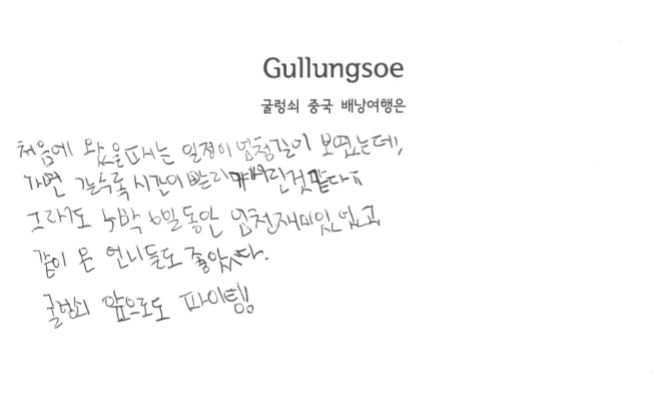 Gullungsoe
굴렁쇠 중국 배낭여행은
처음에 왔을때는 일정이 엄청길어 보였는데,
가면 갈수록 시간이 빨리 린것같다ㅠ
그래도 5박 6일동안 엄청재미있었고
같이 온 언니들도 좋았다.
굴렁쇠 앞으로도 파이팅